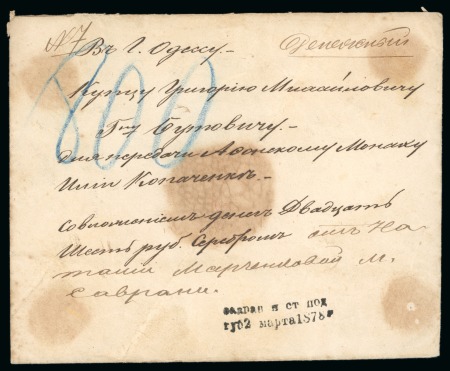 № 7 Въ г. Одессу.- Денежный
800
Купцу Григорію Михайловичу
Г-ну Бутовичу.-
для передачи Афонскому Монаху
Иліи Копаченкѣ
совложеніемъ денегъ Двадцать
Шесть руб. Серебромъ отъ На-
таліи Марченковой м.
Саврани.
савран п ст под
губ2 марта1878г